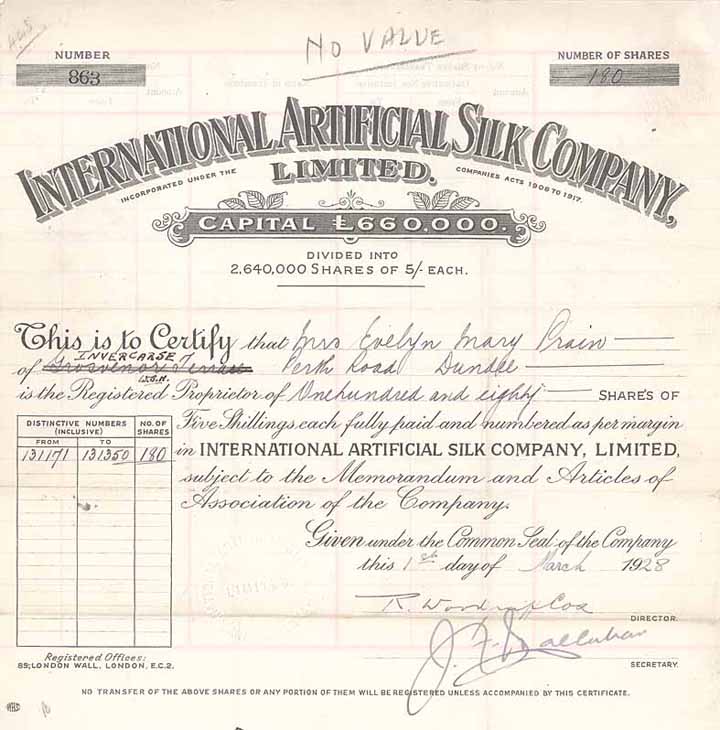 NO VALUE
NUMBER
863
NUMBER OF SHARES
180
INTERNATIONAL ARTIFICIAL SILK COMPANY,
LIMITED.
INCORPORATED UNDER THE COMPANIES ACTS 1908 TO 1917.
CAPITAL £660,000.
DIVIDED INTO
2,640,000 SHARES OF 5/- EACH.
This is to Certify that Mrs Evelyn Mary Prain
INVERCARSE
of Grosvenor Terrace Perth Road Dundee
is the Registered Proprietor of One hundred and eighty SHARES OF
Five Shillings each fully paid and numbered as per margin
in INTERNATIONAL ARTIFICIAL SILK COMPANY, LIMITED,
subject to the Memorandum and Articles of
Association of the Company.
DISTINCTIVE NUMBERS (INCLUSIVE) NO. OF SHARES
FROM TO
131171 131350 180
Given under the Common Seal of the Company
this 1st day of March 1928
DIRECTOR.
SECRETARY.
Registered Offices:
85, LONDON WALL, LONDON, E.C.2.
NO TRANSFER OF THE ABOVE SHARES OR ANY PORTION OF THEM WILL BE REGISTERED UNLESS ACCOMPANIED BY THIS CERTIFICATE.